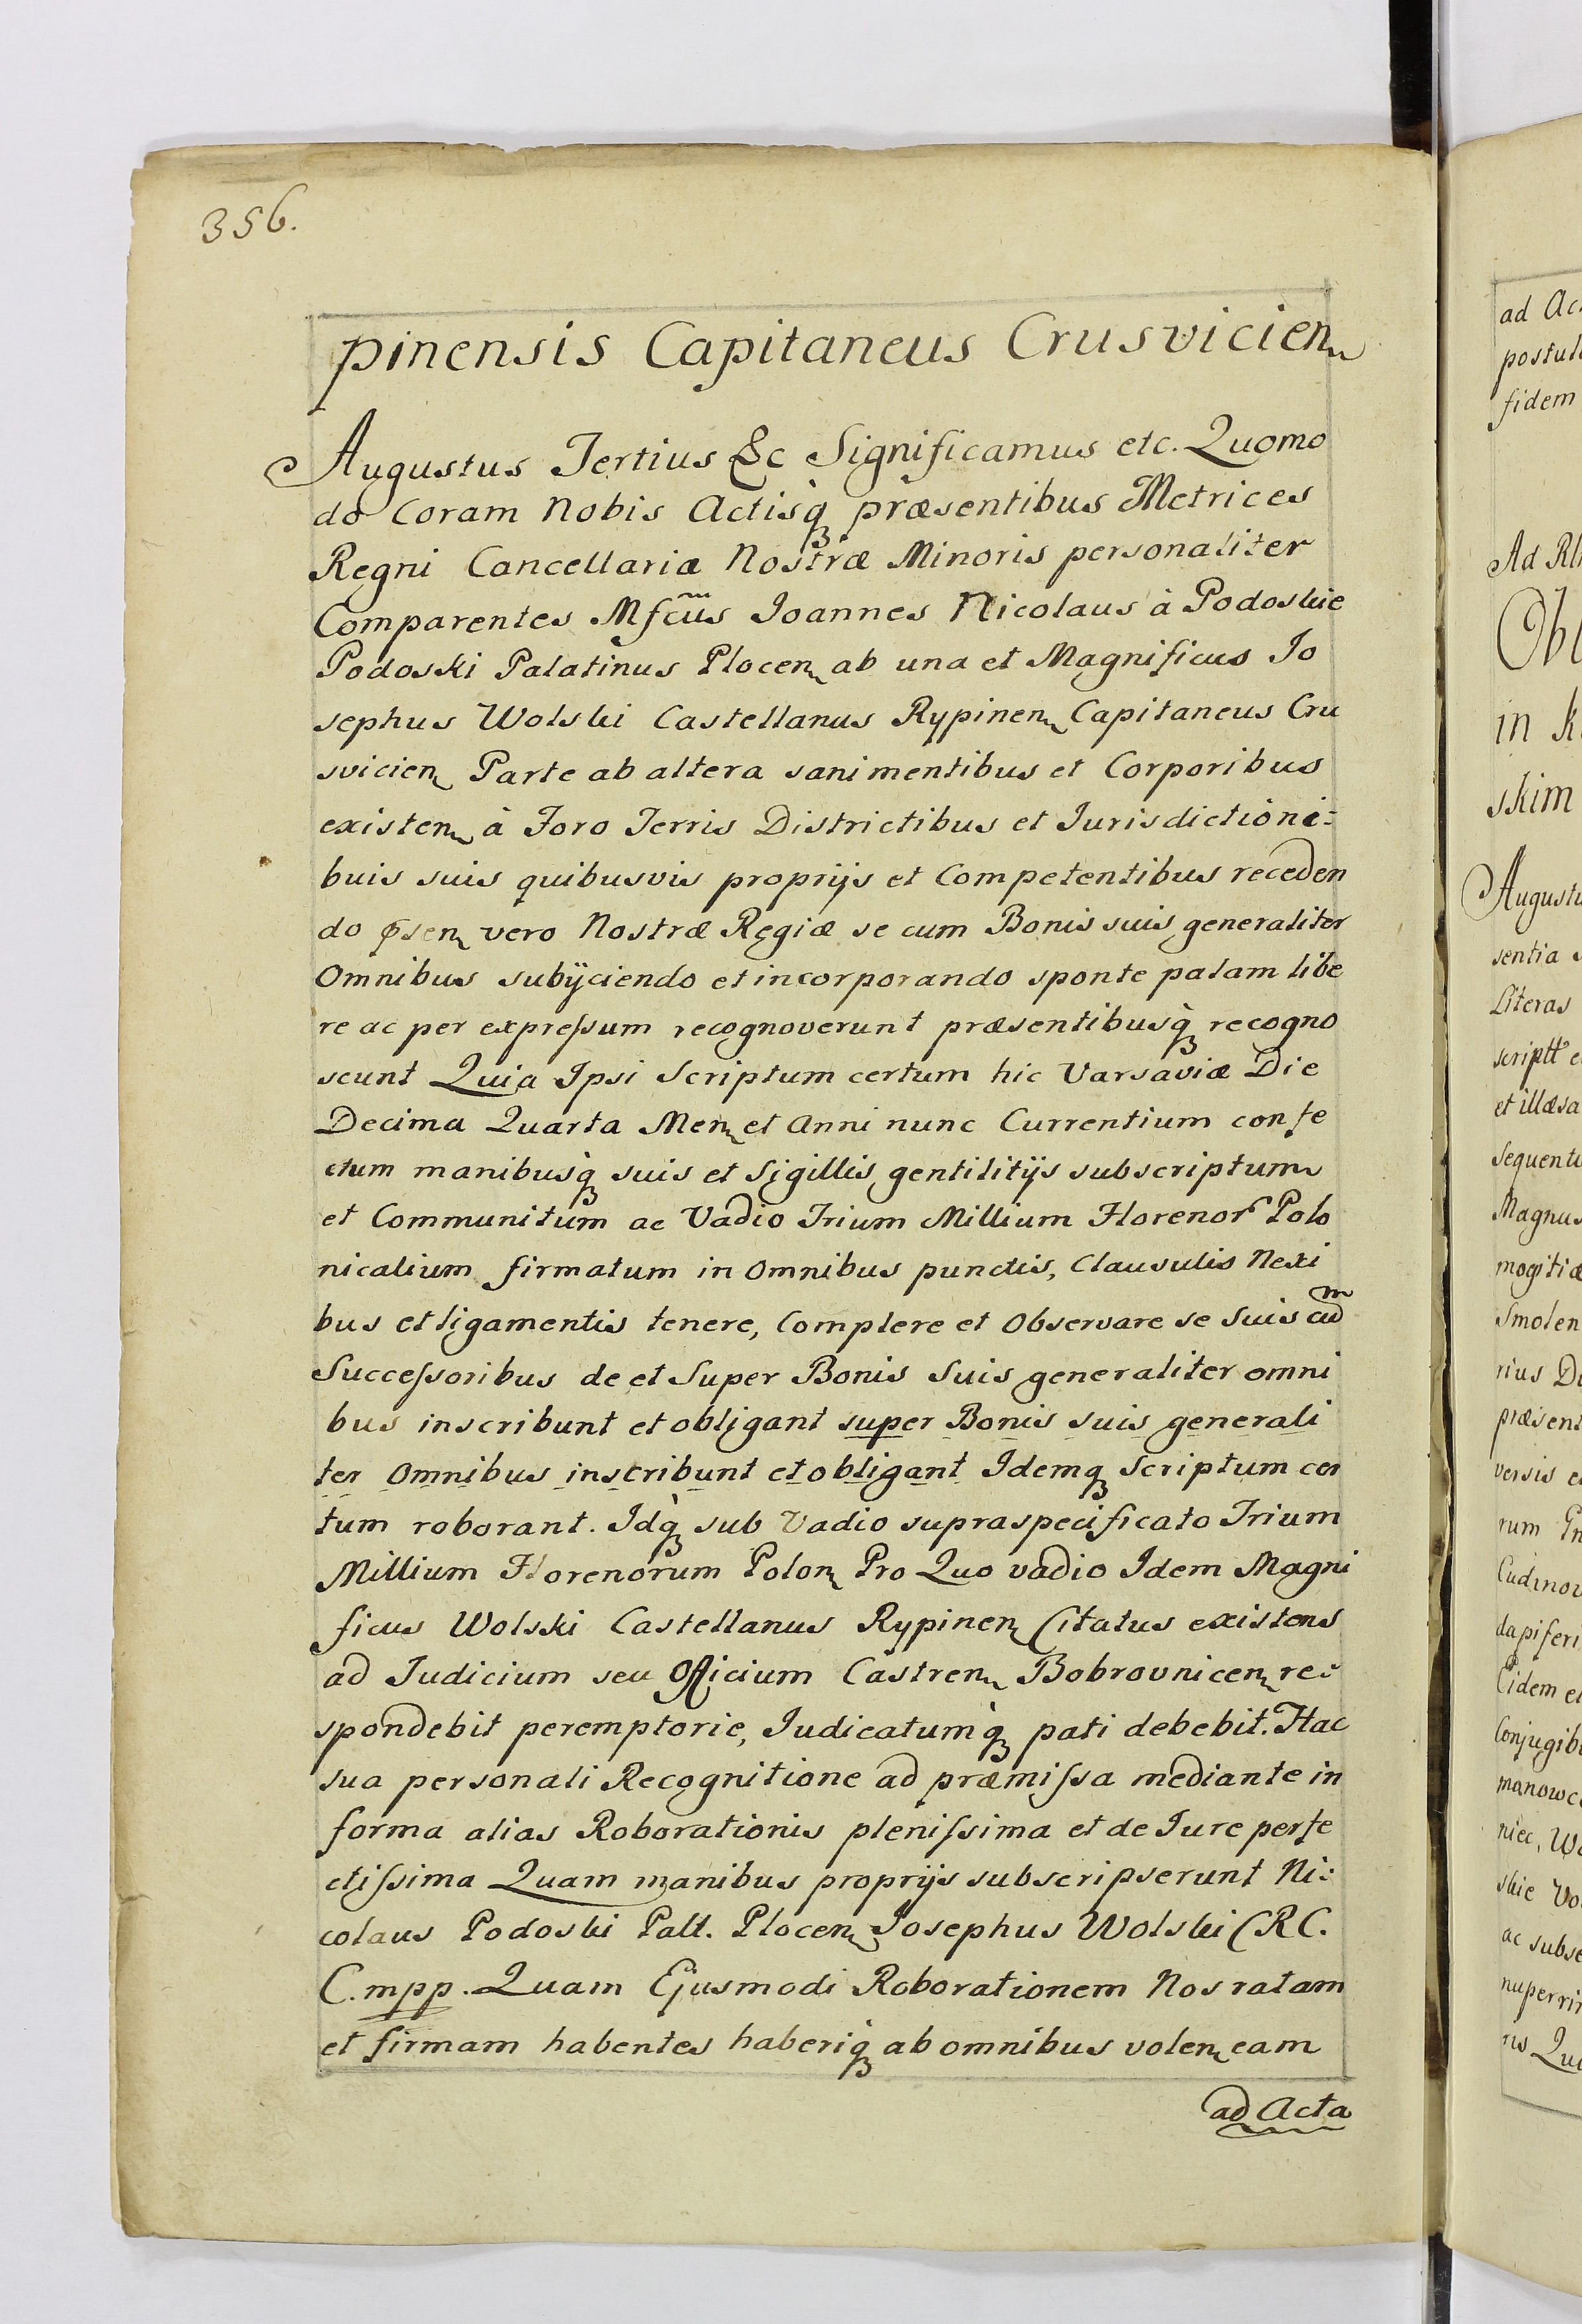 356.
pinensis Capitaneus Crusvicien
Augustus Tertius &c Significamus etc. Quomo
do Coram Nobis Actisq præsentibus Metrices
Regni Cancellariæ Nostræ Minoris personaliter
Comparentes Mfcus Joannes Nicolaus à Podoskie
Podoski Palatinus Plocen ab una et Magnificus Jo
sephus Wolski Castellanus Rypinen Capitaneus Cru
svicien Parte ab altera sani mentibus et Corporibus
existen à Foro Terris Districtibus et Jurisdictioni:
buis suis quibusvis proprijs et Competentibus receden
do psen vero Nostræ Regiæ se cum Bonis suis generaliter
Omnibus subijciendo et incorporando sponte palam libe
re ac per expreſsum recognoverunt præsentibusq recogno
scunt Quia Ipsi Scriptum certum hic Varsaviæ Die
Decima Quarta Men et Anni nunc Currentium confe
ctum manibusq suis et Sigillis gentilitijs subscriptum
et Communitum ac Vadio Trium Millium Florenor Polo
nicalium firmatum in Omnibus punctis, Clausulis Nexi
bus et ligamentis tenere, Complere et Observare se Suis cum
Succeſsoribus de et Super Bonis Suis generaliter omni
bus inscribunt et obligant super Bonis suis generali
ter Omnibus inscribunt et obligant Idemq Scriptum cer
tum roborant. Idq sub Vadio supraspecificato Trium
Millium Florenorum Polon Pro Quo vadio Idem Magni
ficus Wolski Castellanus Rypinen Citatus existens
ad Judicium seu Officium Castren Bobrovnicen re:
spondebit peremptorie, Judicatumq pati debebit. Hac
sua personali Recognitione ad præmiſsa mediante in
forma alias Roborationis pleniſsima et de Jure perfe
ctiſsima Quam manibus proprijs subscripserunt Ni:
colaus Podoski Palt. Plocen Josephus Wolski C R C.
C. mpp. Quam Ejusmodi Roborationem Nos ratam
et firmam habentes haberiq ab omnibus volen eam
ad Acta
ad Ac
postul
fidem
Ad Rl
Obl
in k
skim
Augustu
sentia
Literas
scriptt
et illæsa
Sequent
Magnus
mogitiæ
Smolen
rius D
præsent
versis
rum
Cudinov
dapiferi
Eidem e
Conjugib
manowc
niec, W
skie Vo
ac subsc
nuperri
ris Qu